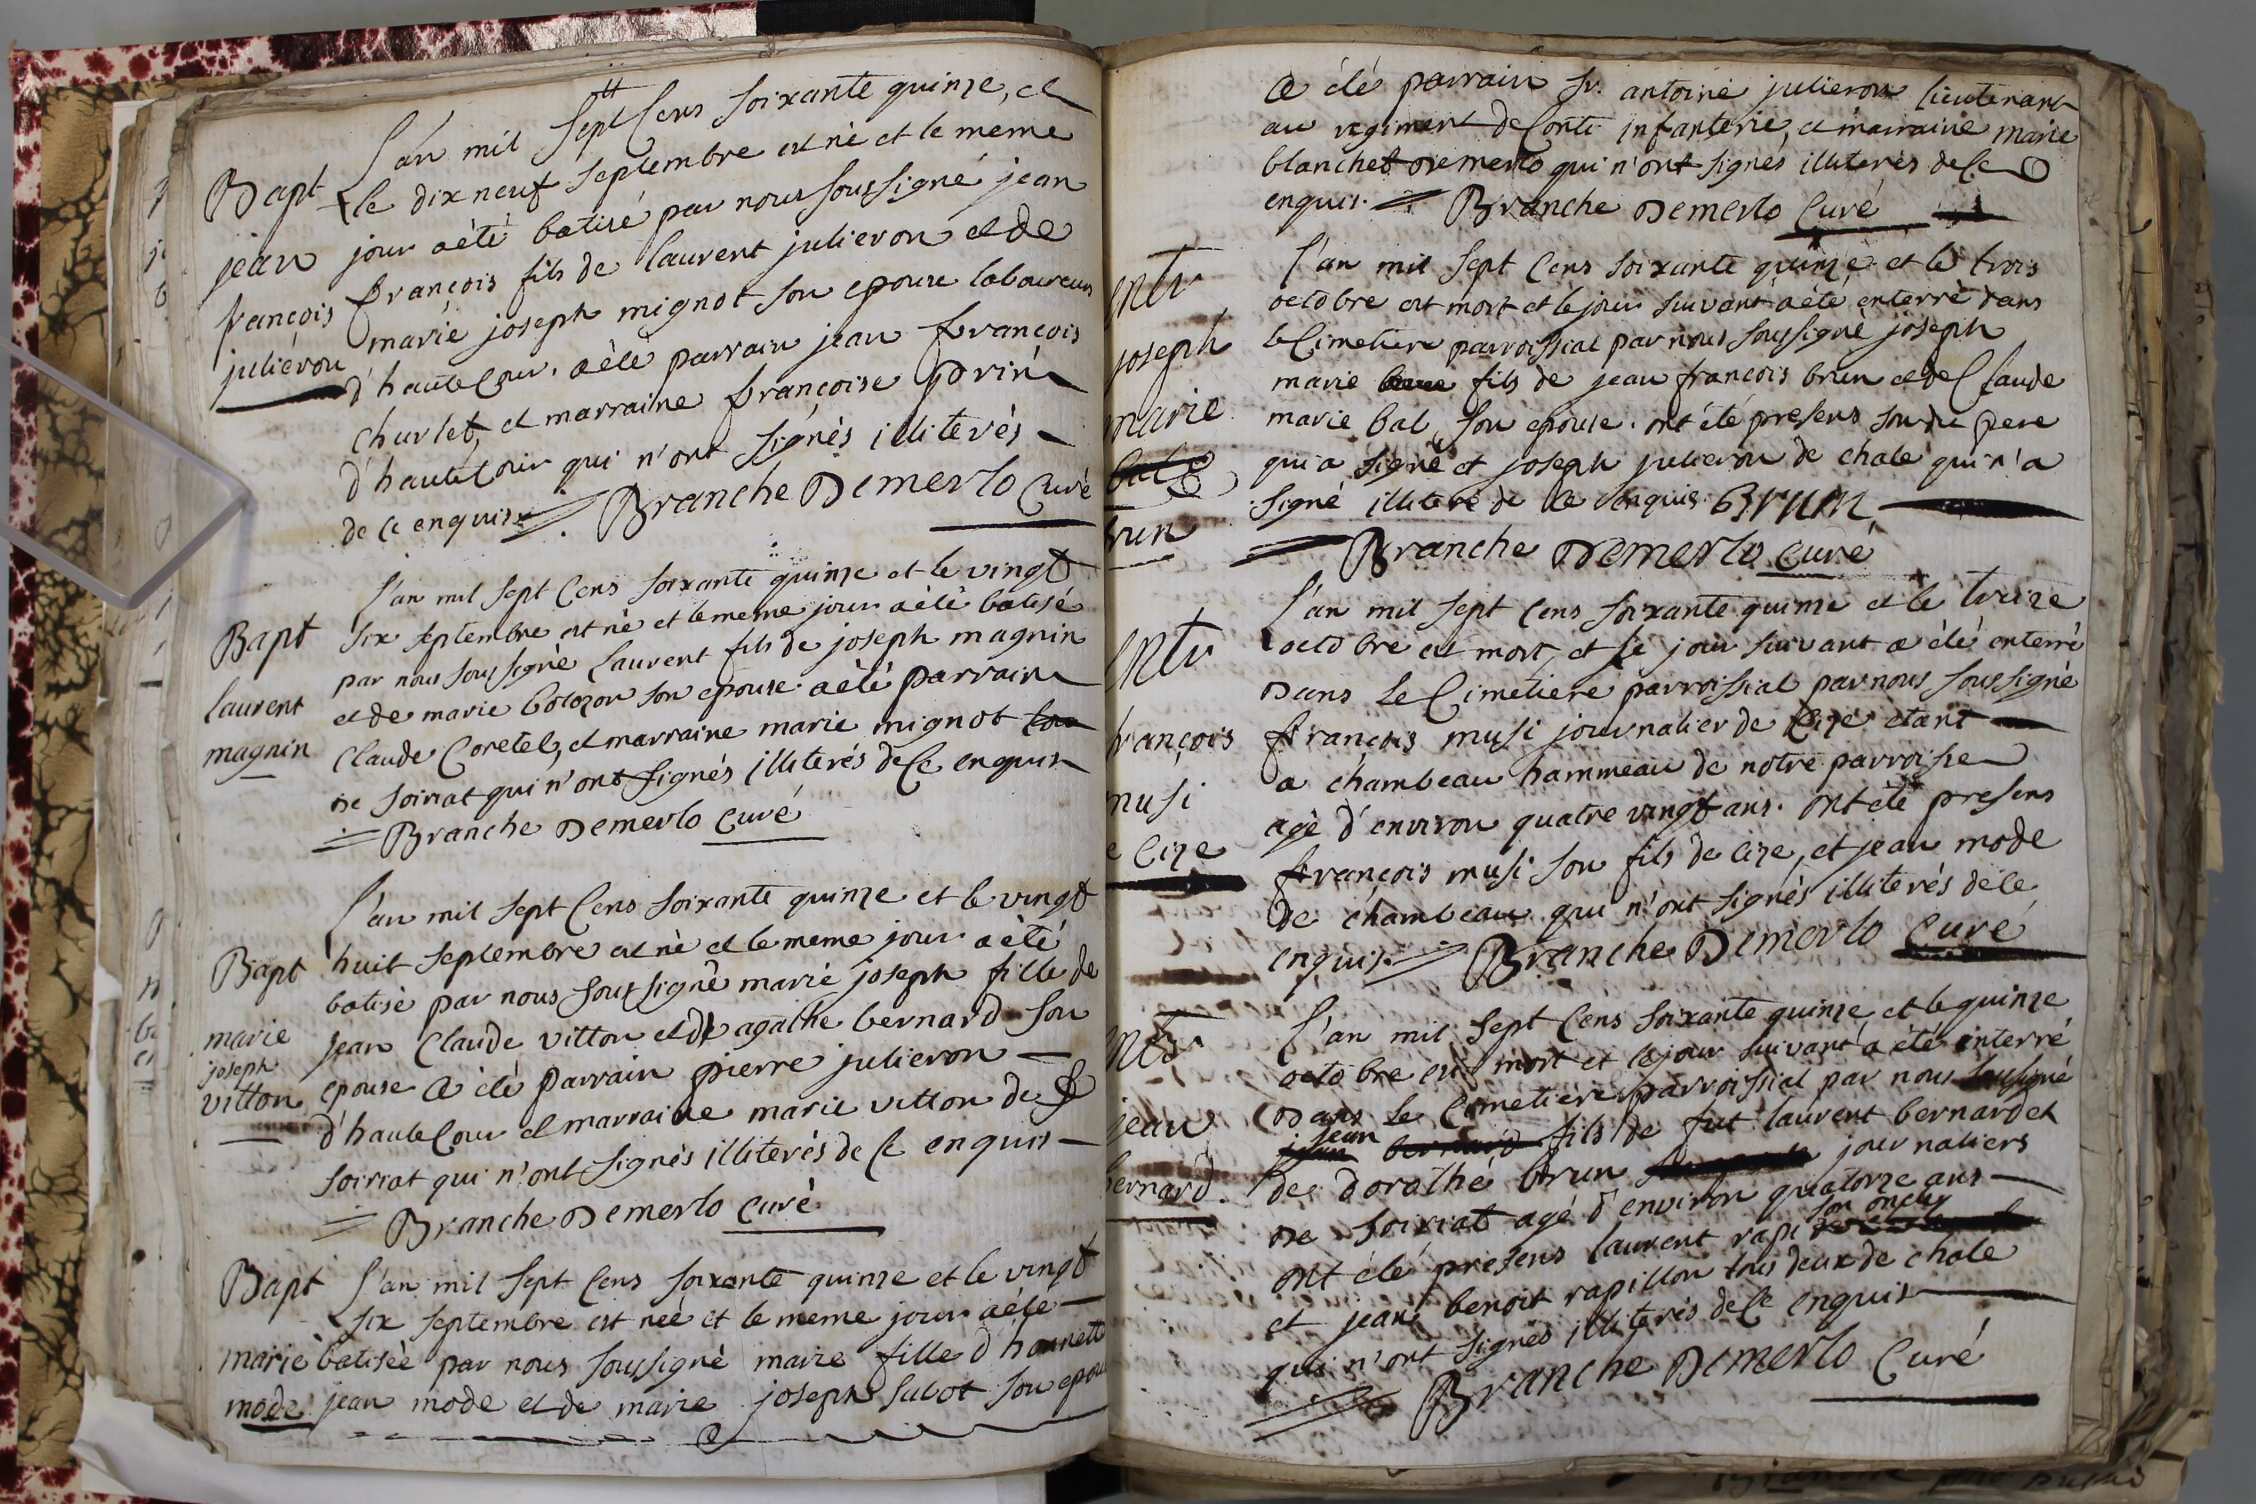 L'an mil sept cens soixante quinze, et
Bapt
le dix neuf septembre est né et le meme
jour a été batisé par nous soussigné jean
jean
françois fils de laurent julieron et de
françois
marie joseph mignot son epouse laboureurs
juliéron
d'hautecour. a été parrain jean françois
churlet, et marraine françoise
d'hautecour qui n'ont signés illiterés
de ce enquis Branche Demerlo curé
L'an mil sept cens soixante quinze et le vingt
Bapt
six septembre est né et le meme jour a été batisé
par nous soussigné laurent fils de joseph magnin
laurent
et de marie bolozon son epouse. a été parrain
magnin
claude coretel, et marraine marie mignot
de soiriat qui n'ont signés illiterés de ce enquis
Branche Demerlo curé
L'an mil sept cens soixante quinze et le vingt
Bapt
huit septembre est né et le meme jour a été
batisé par nous soussigné marie joseph fille de
marie
jean claude vitton et de agathe bernard son
joseph
vitton
epouse a été parrain pierre julieron
d'hautecour et marraine marie vitton de
soiriat qui n'ont signés illiterés de ce enquis
Branche Demerlo curé
Bapt
L'an mil sept cens soixante quinze et le vingt
six septembre est née et le meme jour a été
marie
batisée par nous soussigné marie fille d'honnete
mode
jean mode et de marie joseph subot son epouse
a été parrain sr. antoine julieron lieutenant
au regiment de Conti infanterie, et marraine marie
blanchet demerlo qui n'ont signés illiterés de ce
enquis. Branche Demerlo Curé
entr
L'an mil sept cens soixante quinze et le trois
octobre est mort et le jour suivant a été enterré dans
joseph
le Cimetiere parroissial par nous soussigné joseph
marie
marie fils de jean françois brun et de Claude
bal
marie bal, son epouse. ont été presens son du pere
qui a signé et joseph julieron de chale qui n'a
brun
signé illiteré de ce enquis. Brun
Branche Demerlo curé
L'an mil sept cens soixante quinze et le treize
entr
octobre est mort, et le jour suivant a été enterré
dans le Cimetiere parroissial par nous soussigné
françois
françois musi journalier de cize etant
musi
a chambeau hammeau de notre parroisse
agé d'environ quatre vingt ans. ont été presens
de cize
françois musi son fils de cize, et jean mode
de chambeau qui n'ont signés illiterés de ce
enquis. Branche Demerlo Curé
entr
L'an mil sept cens soixante quinze et le quinze
octobre est mort et le jour suivant a été enterré
dans le cimetiere parroissial par nous soussigné
jean
jean
jean bernard fils de fut laurent bernard et
bernard
de dorathé brun journaliers
de soiriat agé d'environ quatorze ans
son oncle
ont été presens laurent rapi
et jean benoit rapillon tous deux de chale
qui n'ont signés illiterés de ce enquis
Branche Demerlo Curé